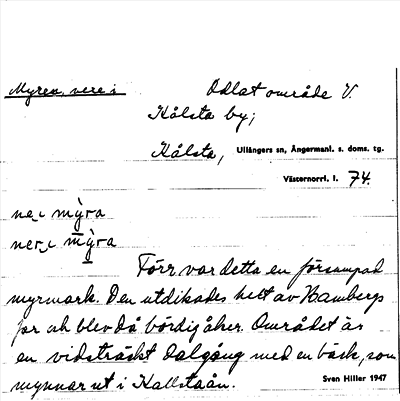 Myren, nere i
Odlat område V.
Kålsta by;
Kålsta, Ullångers sn, Ångermanl. s. doms. tg.
Västernorrl. l. 74.
ne i mỳra
ner i mỳra
Förr var detta en försumpad
myrmark. Den utdikades helt av Hambergs
far och blev då bördig åker. Området är
en vidsträckt dalgång med en bäck, som
mynnar ut i Kallstaån.
Sven Hiller 1947